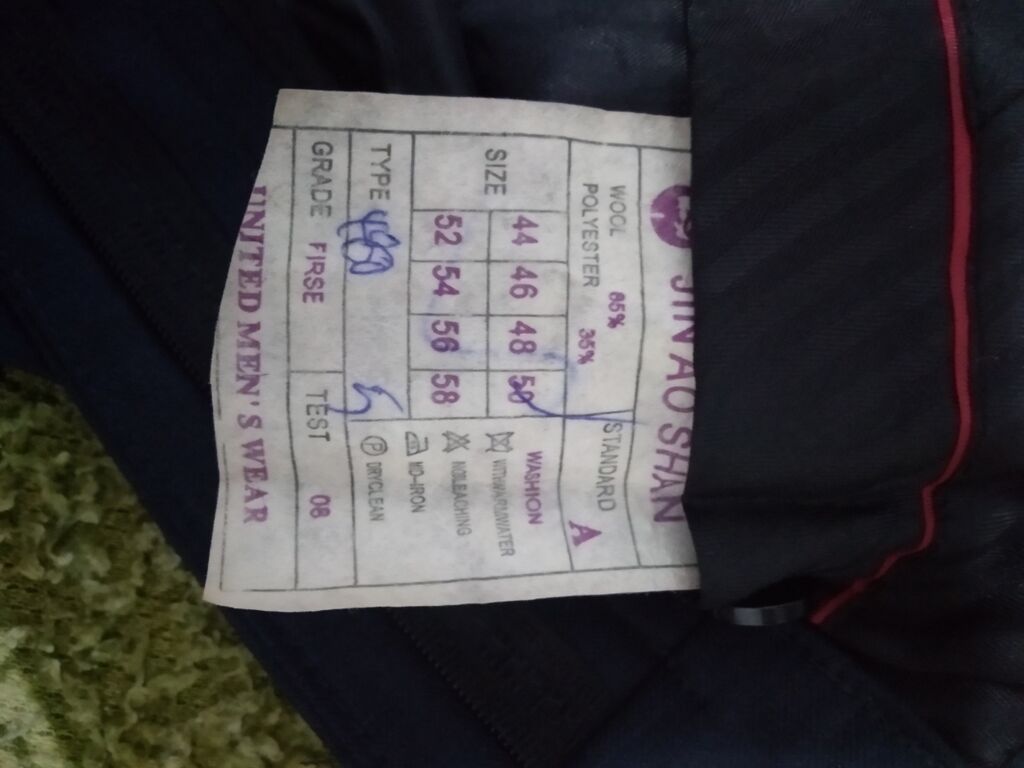 JIN AO SHAN
WOOL 65%
POLYESTER 35%
STANDARD A
SIZE
44 46 48 50
52 54 56 58
WASHION
WITHWARMWATER
NOLBACHING
NO-IRON
P DRYCLEAN
TYPE
GRADE FIRSE
TEST 08
UNITED MEN'S WEAR